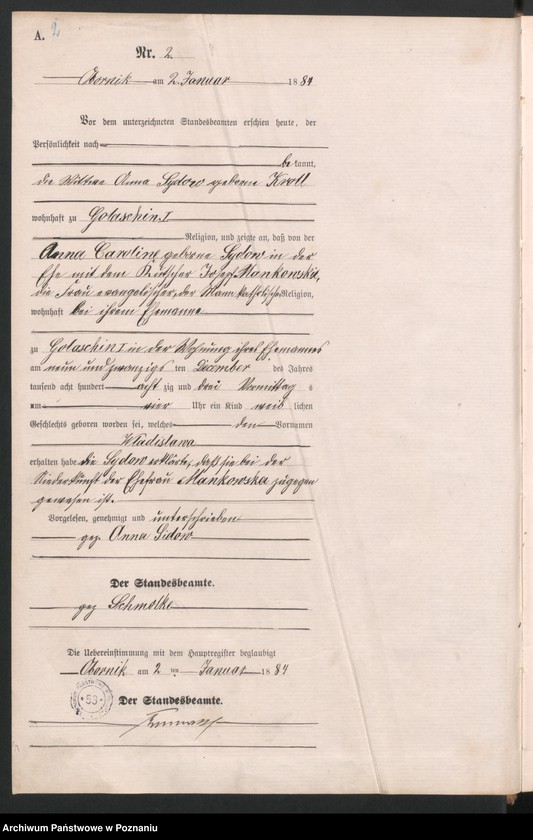 A. 2
Nr. 2.
Obornik am 2. Januar 1884
Vor dem unterzeichneten Standesbeamten erschien heute, der
Persönlichkeit nach
be kannt,
die Wittwe Anna Sydow geborne Kroll
wohnhaft zu Golaschin I
Religion, und zeigte an, daß von der
Anna Caroline geborne Sydow in der
Ehe mit dem Kutscher Josef Mankowski,
die Frau evangelischer, der Mann katholischer Religion,
wohnhaft bei ihrem Ehemanne
zu Golaschin I in der Wohnung ihres Ehemannes
am neun und zwanzigs ten Dezember des Jahres
tausend acht hundert acht zig und drei Vormittag s
um vier Uhr ein Kind weib lichen
Geschlechts geboren worden sei, welches den Vornamen
Wladislawa
erhalten habe die Sydow erklärte, daß sie bei der
Niederkunft der Ehefrau Mankowska zugegen
gewesen ist.
Vorgelesen, genehmigt und unterschrieben
gez. Anna Sidow
Der Standesbeamte.
gez Schmolke
Die Uebereinstimmung mit dem Hauptregister beglaubigt
Obornik am 2 ten Januar 1884
53
Der Standesbeamte.
Archiwum Państwowe w Poznaniu